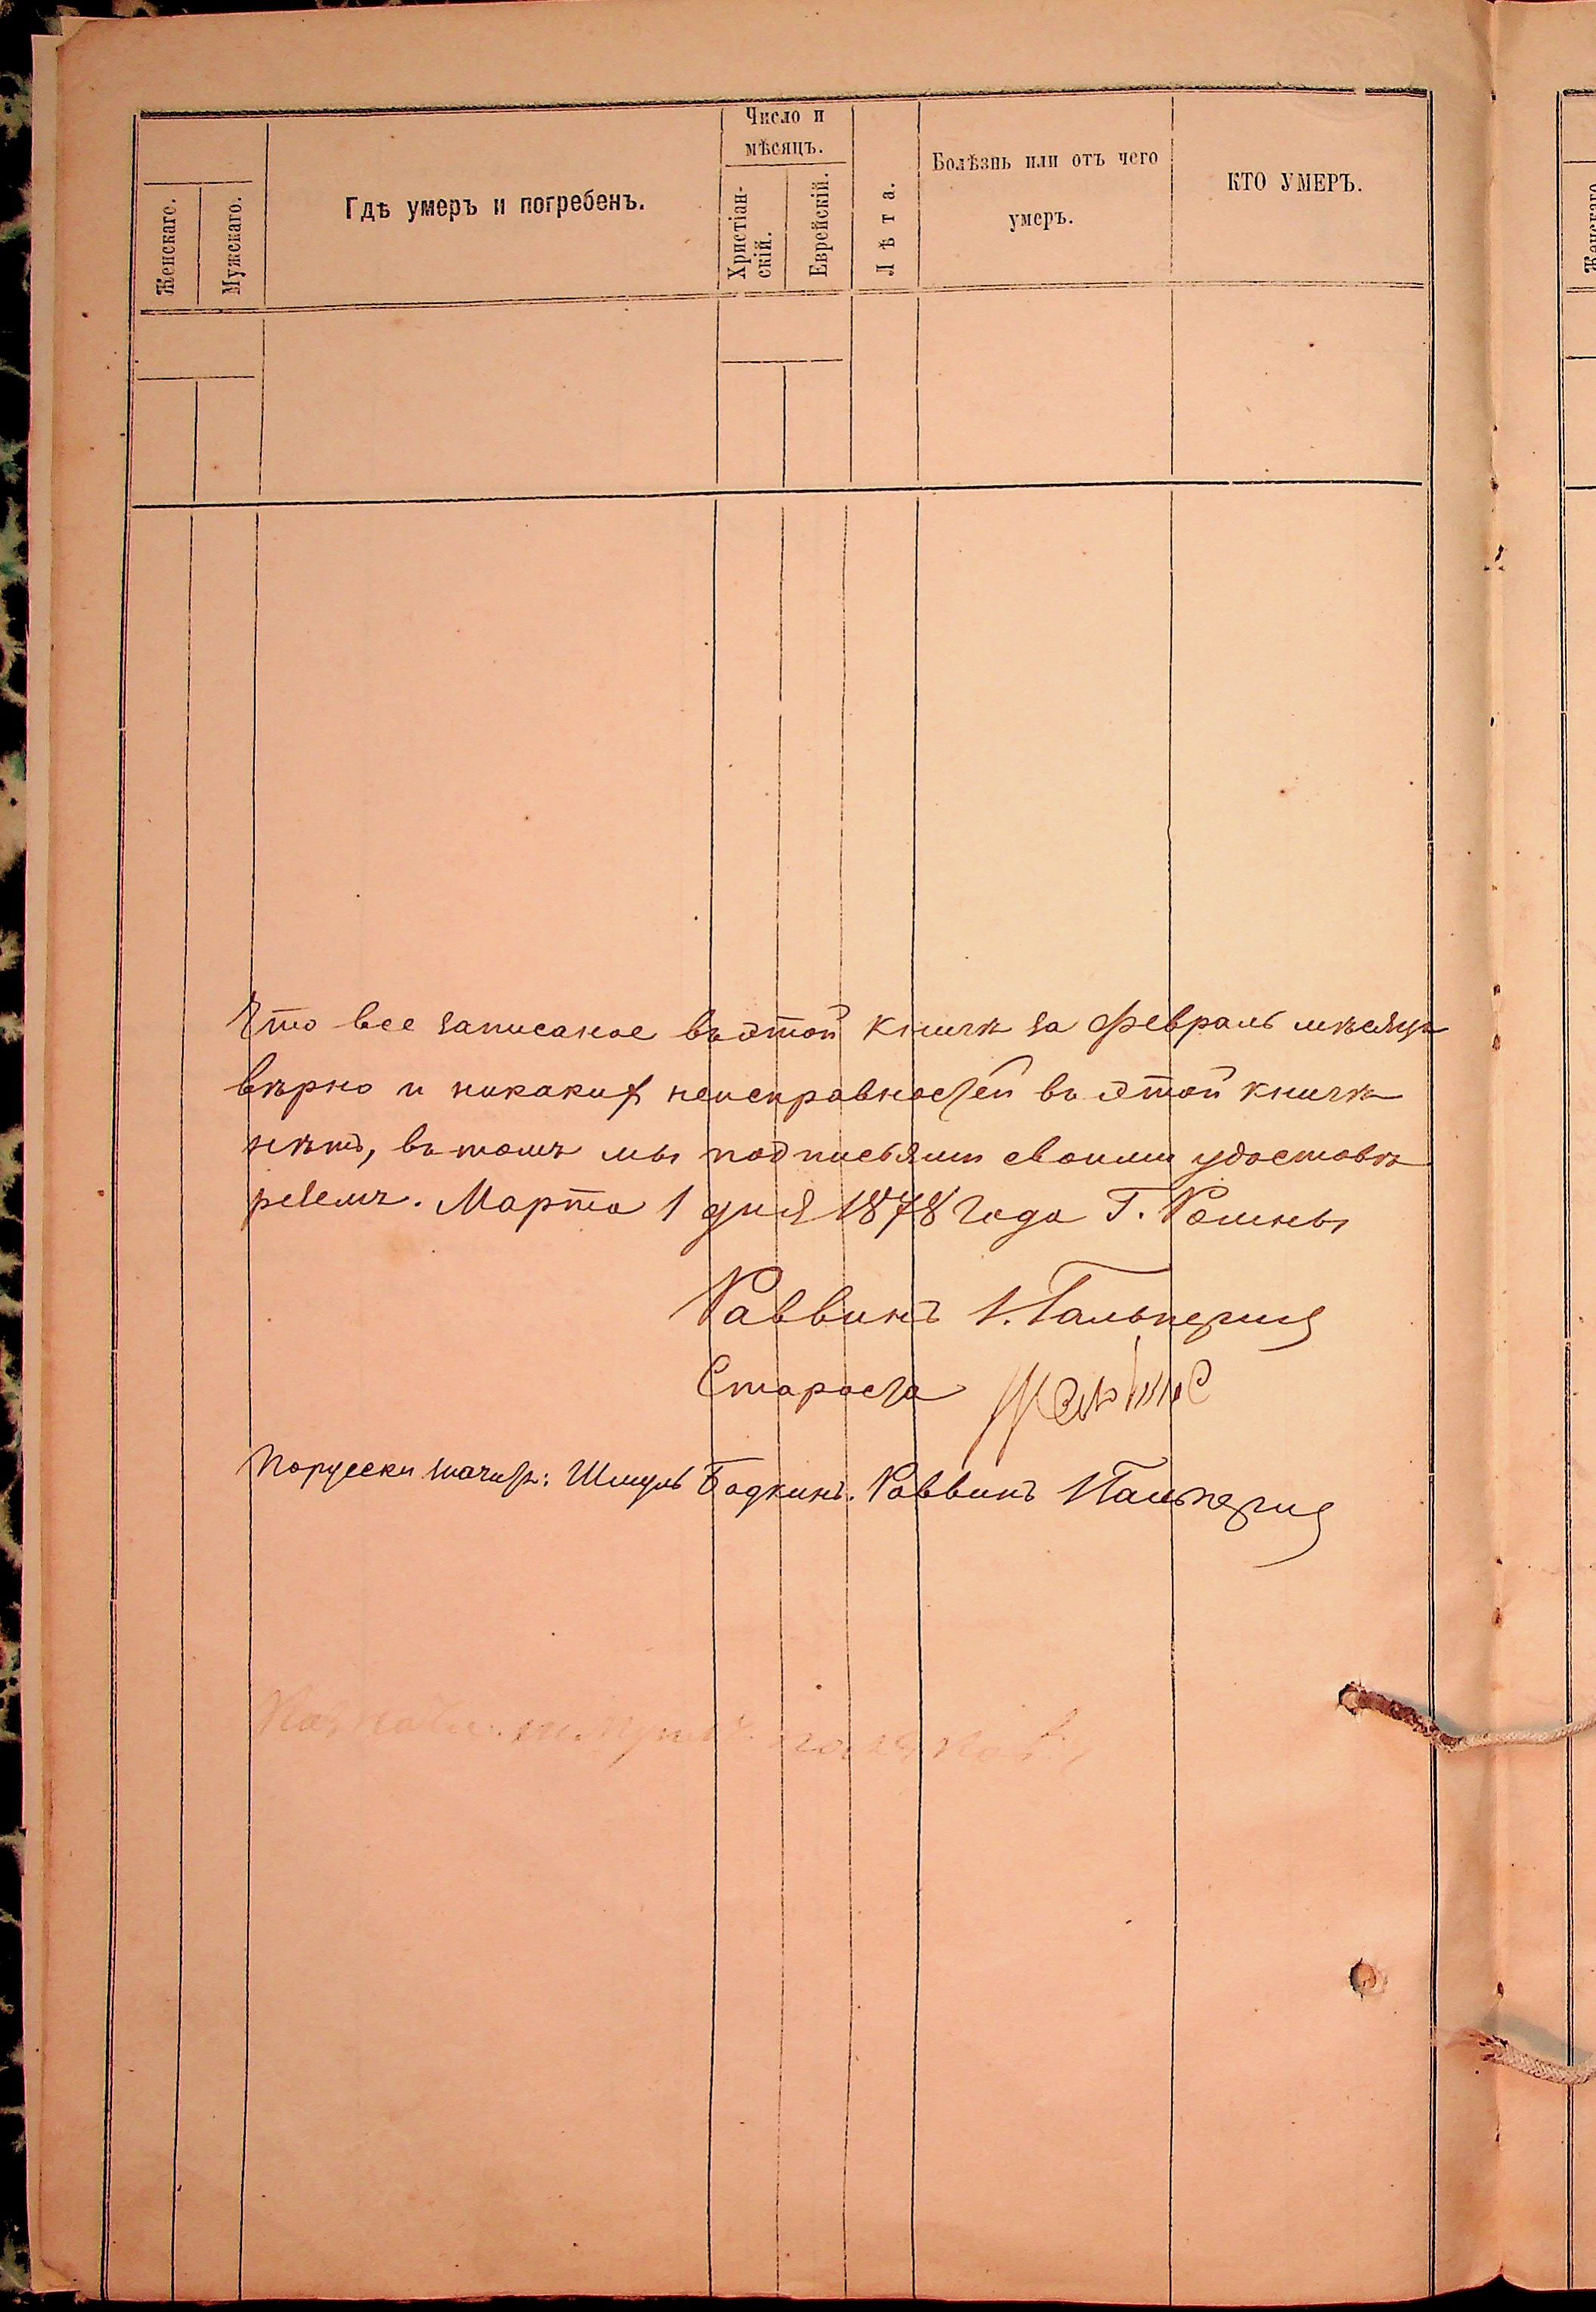 Женскаго.
Мужскаго.
Гдѣ умеръ и погребенъ.
Число и
мѣсяцъ.
Христіан-
скій.
Еврейскій.
Лѣта.
Болѣзнь или отъ чего
умеръ.
КТО УМЕРЪ.
Что все записаное въ этой книгѣ за Февраль мѣсяцъ
вѣрно и никаких неисправностей въ этой книгѣ
нѣтъ, въ томъ мы подписями своими удостовѣ
ряемъ. Марта 1 дня 1878 года Г. Ромны
Раввинъ И. Гальперин
Староста
По русски значитъ: Шмуль Бодкинъ. Раввинъ И Гальперин
Женскаго